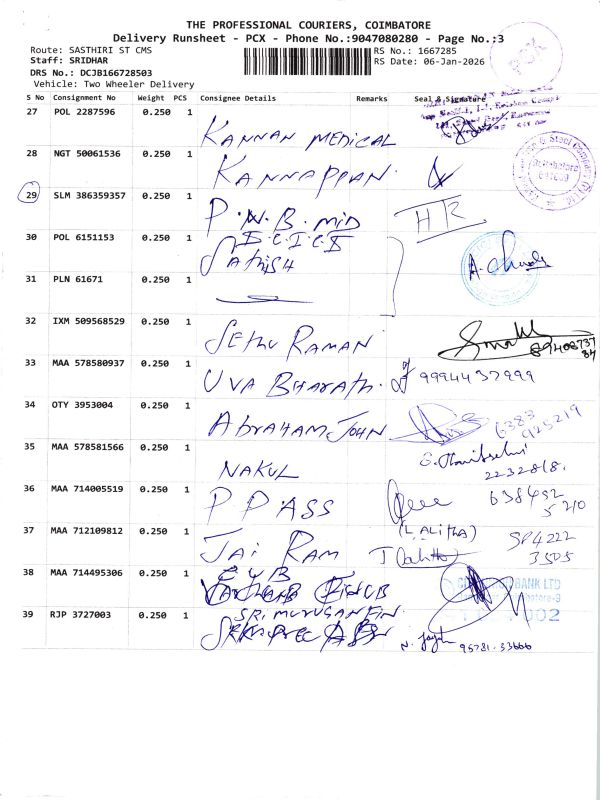 THE PROFESSIONAL COURIERS, COIMBATORE
Delivery Runsheet - PCX - Phone No.:9047080280 - Page No.:3
Route: SASTHIRI ST CMS
RS No.: 1667285
Staff: SRIDHAR
RS Date: 06-Jan-2026
DRS No.: DCJB166728503
Vehicle: Two Wheeler Delivery
PCX
S No Consignment No Weight PCS Consignee Details Remarks Seal & Signature
27 POL 2287596 0.250 1 KANNAN MEDICAL
28 NGT 50061536 0.250 1 KANNAPPAN.
29 SLM 386359357 0.250 1 P.N.B. MID HR
30 POL 6151153 0.250 1 I.C.I.C.I
SATHISH
31 PLN 61671 0.250 1
32 IXM 509568529 0.250 1 SETHU RAMAN
33 MAA 578580937 0.250 1 UVA BHARATH. 9994437999
34 OTY 3953004 0.250 1 ABRAHAM JOHN 6383
925219
35 MAA 578581566 0.250 1 NAKUL
2232818.
36 MAA 714005519 0.250 1 P P ASS 638492
5210
(LALITHA)
37 MAA 712109812 0.250 1 JAI RAM
3505
38 MAA 714495306 0.250 1
BANK LTD
002
39 RJP 3727003 0.250 1 SRI. MURUGAN FIN.
95781-33666